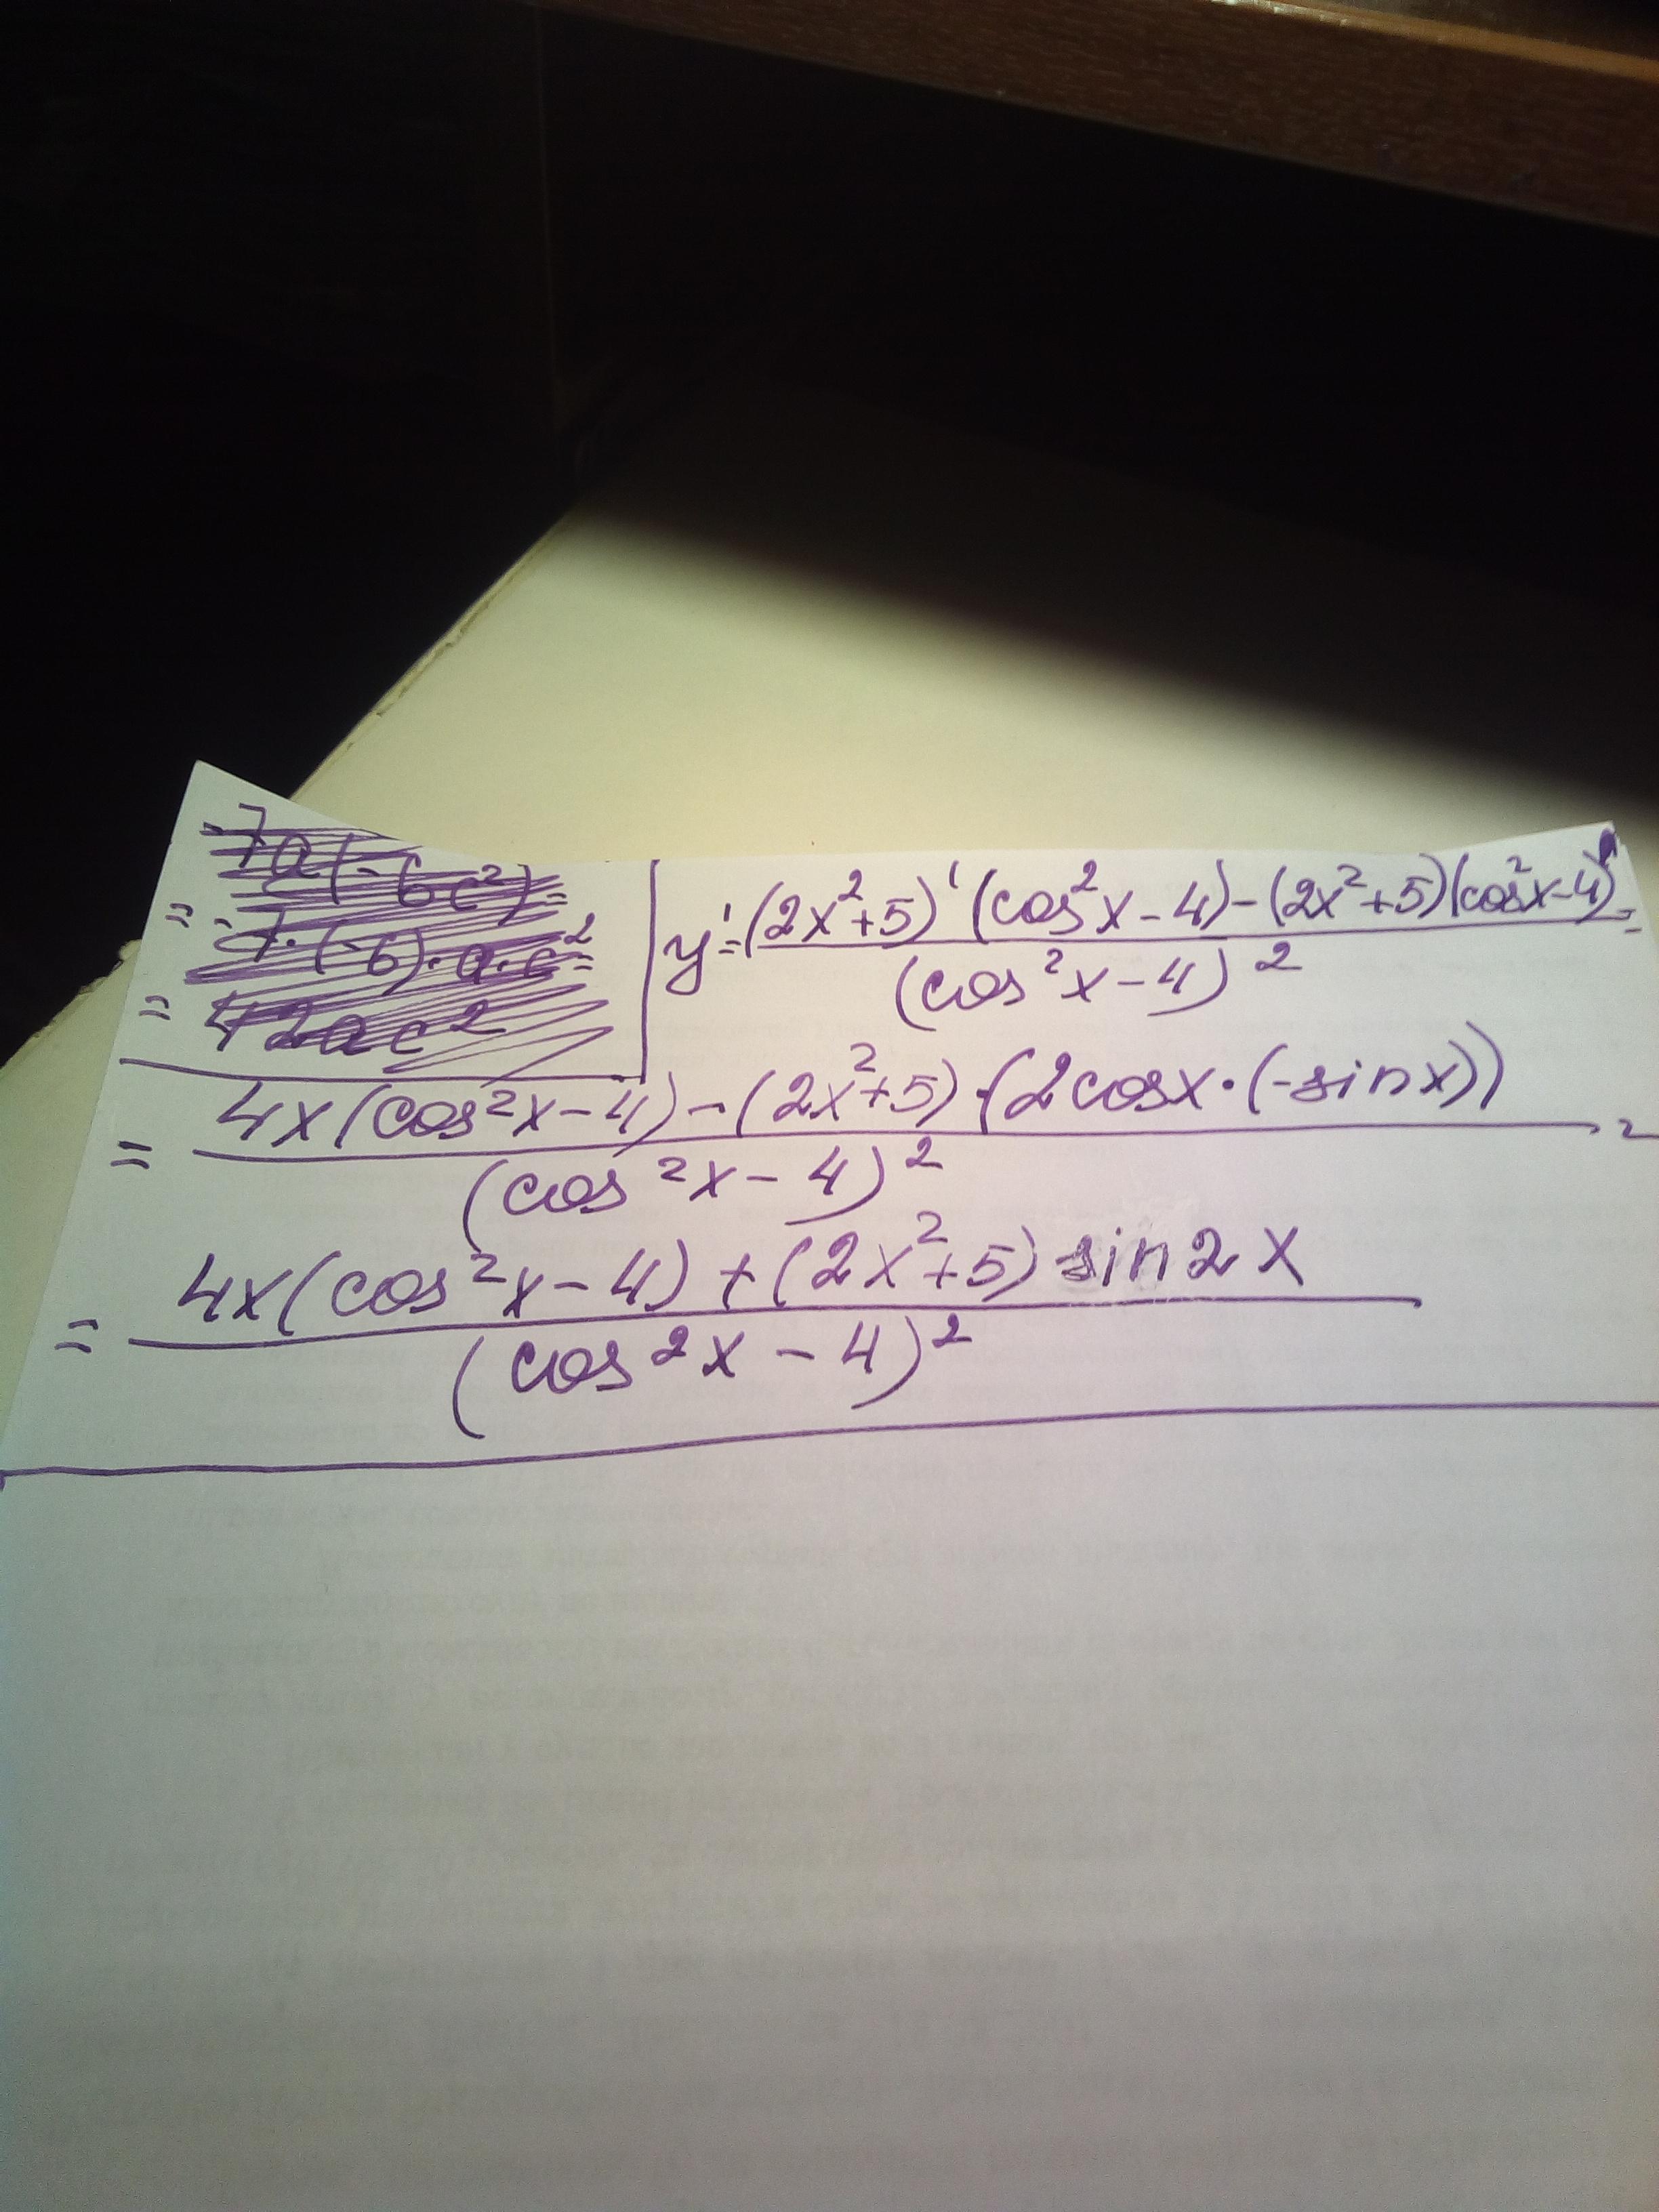 -7a(-6c²)=
= -7·(-6)·a·c²=
= 42ac²
y'= (2x²+5)'(cos²x-4)-(2x²+5)(cos²x-4)' =
(cos²x-4)²
4x(cos²x-4)-(2x²+5)·(2cosx·(-sinx))
= =
(cos²x-4)²
4x(cos²x-4)+(2x²+5)sin2x
=
(cos²x-4)²